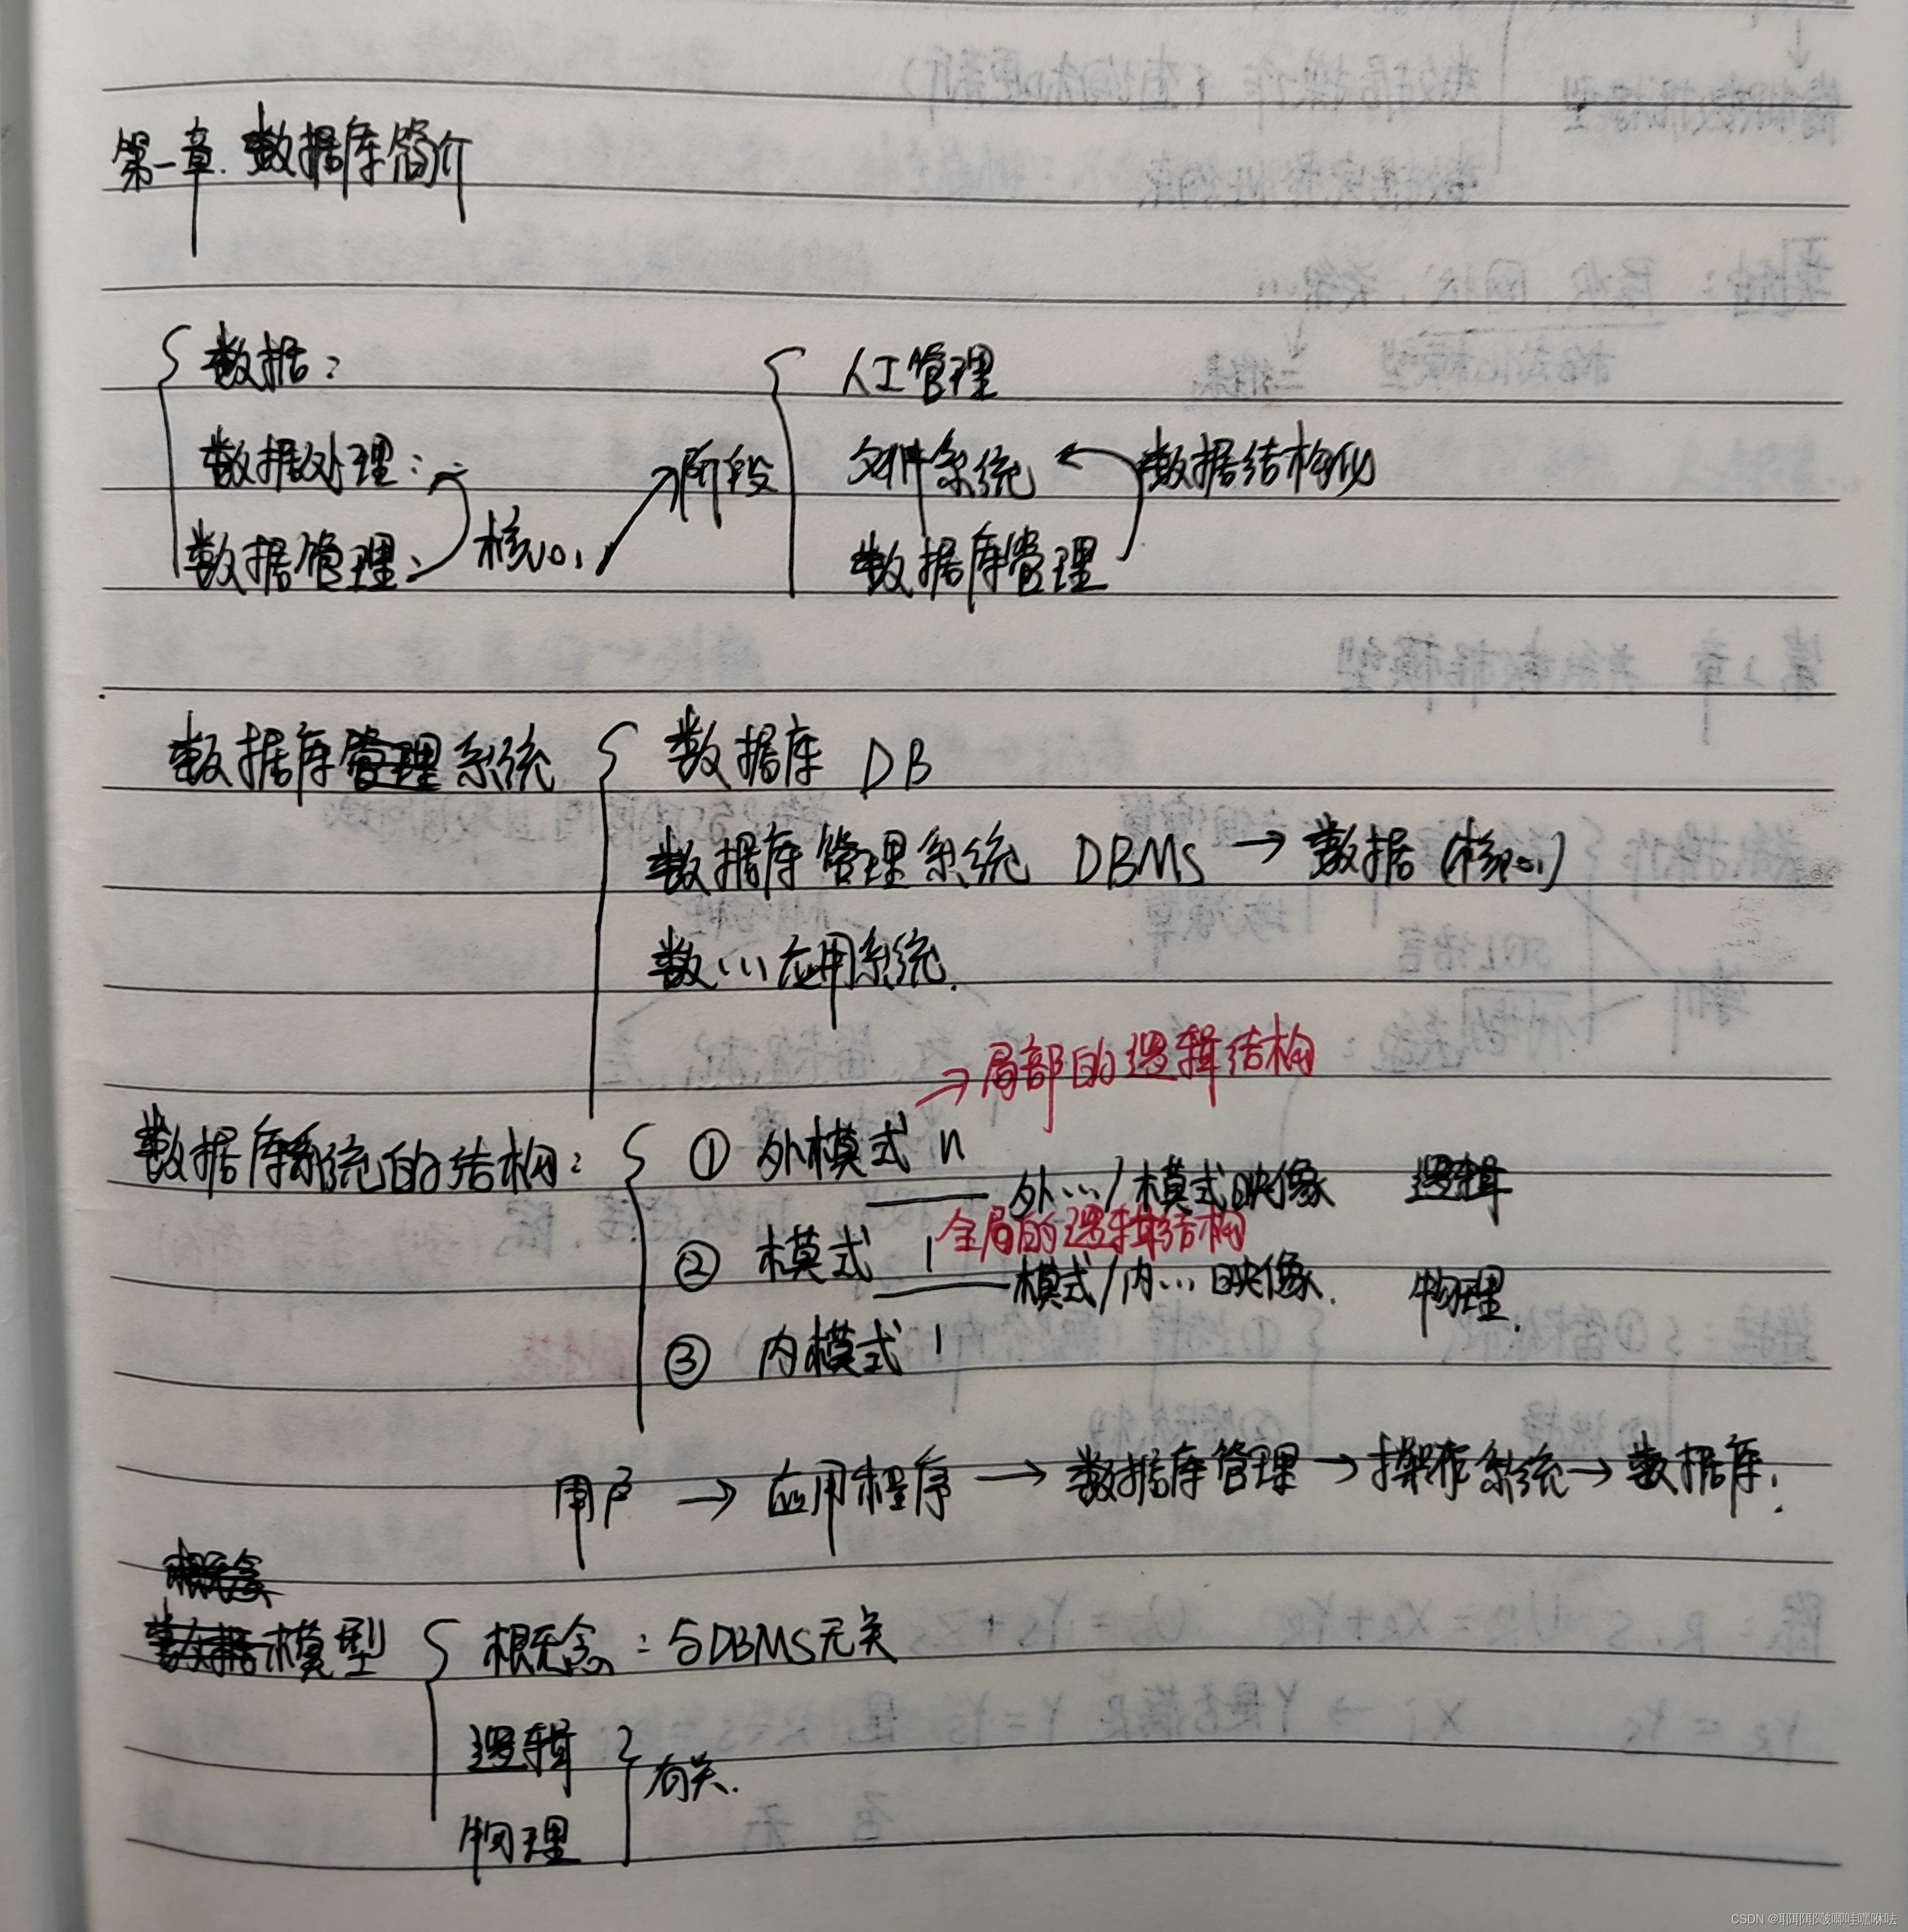 第一章. 数据库简介
数据:
人工管理
数据处理:
阶段
文件系统
数据结构化
数据管理:
核心
数据库管理
数据库管理系统
数据库 DB
数据库管理系统 DBMS → 数据 (核心)
数…应用系统.
→局部的逻辑结构
数据库系统的结构:
① 外模式 n
外…/模式映像 逻辑
全局的逻辑结构
② 模式 1
模式/内…映像. 物理.
③ 内模式 1
用户 → 应用程序 → 数据库管理 → 操作系统 → 数据库.
概念
数据模型
概念: 与DBMS无关
逻辑
有关.
物理
CSDN @耶耶耶啵唧哇嘿咻呿